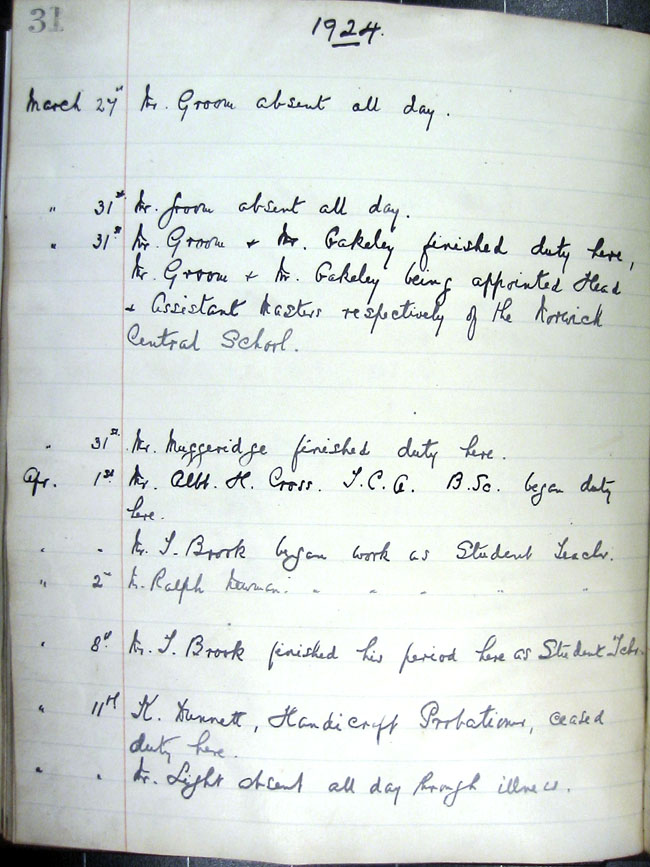 31
1924.
March 27th Mr. Groom absent all day.
" 31st Mr. Groom absent all day.
" 31st Mr. Groom & Mr. Oakeley finished duty here,
Mr. Groom & Mr. Oakeley being appointed Head
& Assistant Masters respectively of the Norwich
Central School.
" 31st Mr. Muggeridge finished duty here.
Apr. 1st Mr. Albt. H. Cross. T.C.A. B.Sc. began duty
here.
" " Mr. T. Brook began work as Student Teachr.
" 2nd Mr. Ralph Newman. " " " " "
" 8th Mr. T. Brook finished his period here as Student Tchr.
" 11th K. Dunnett, Handicraft Probationer, ceased
duty here.
" " Mr. Light absent all day through illness.